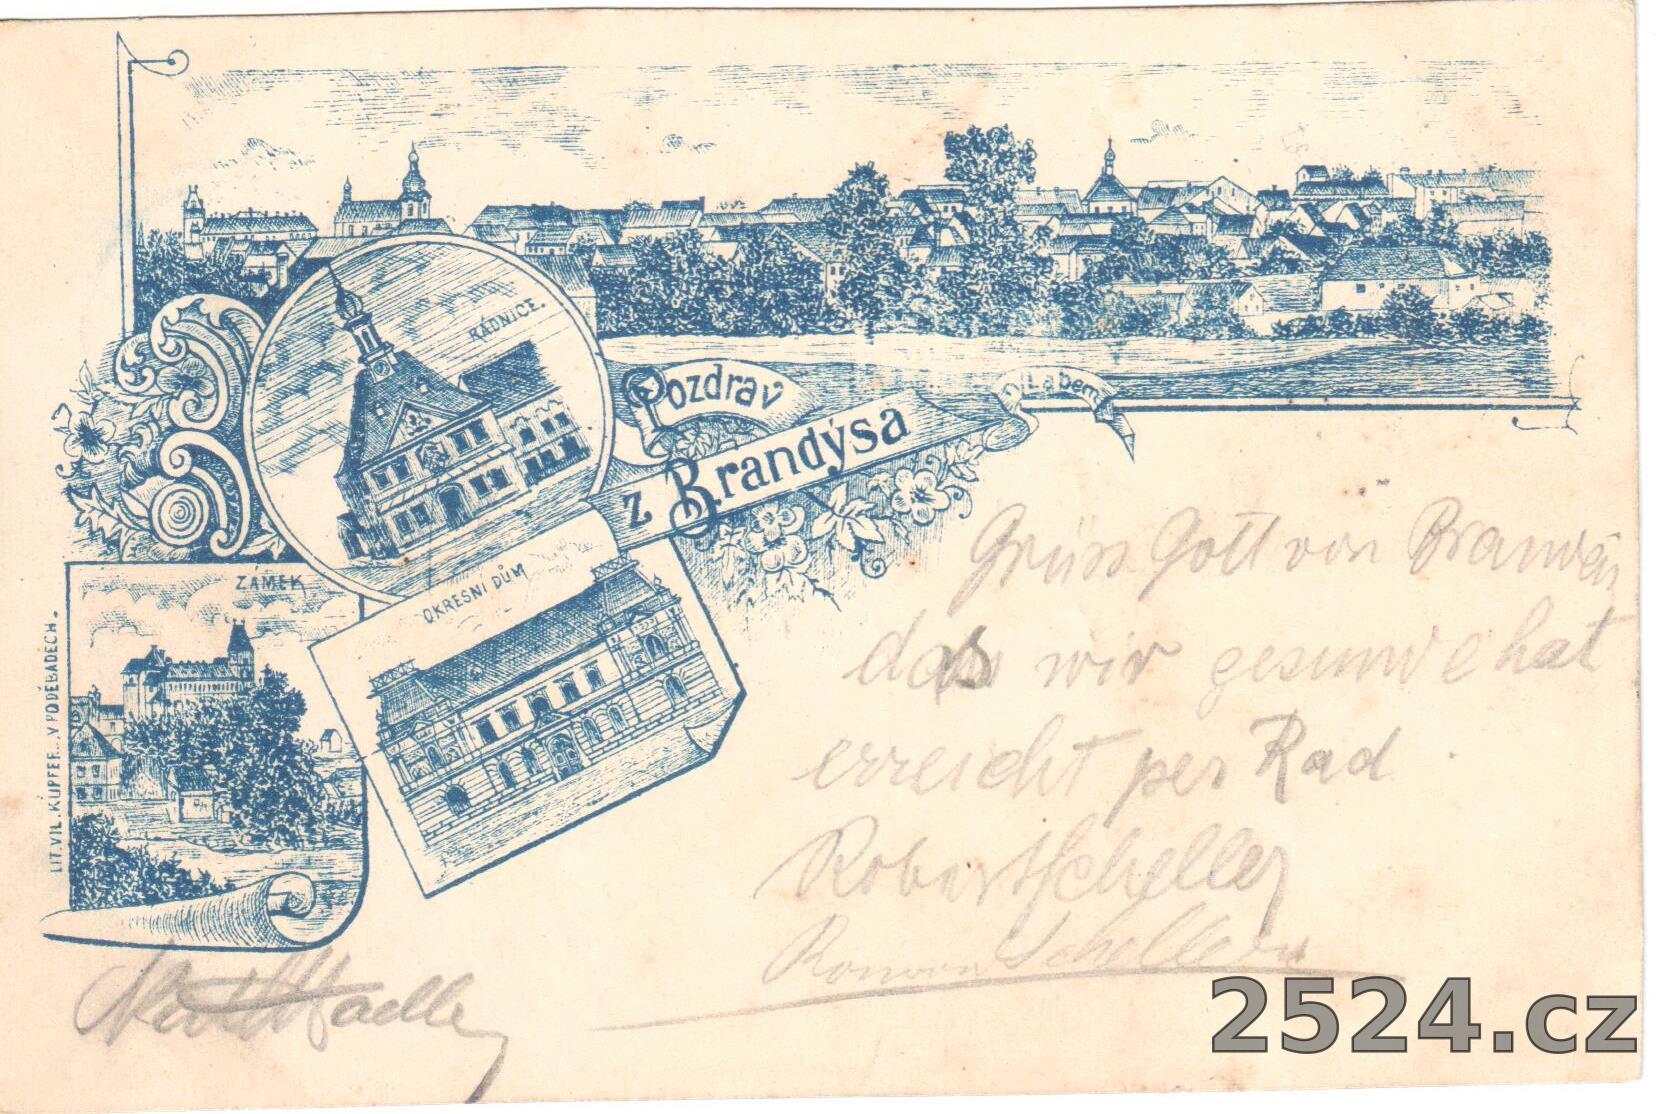 RADNICE.
Pozdrav
z Brandýsa
n/Labem
ZÁMEK
OKRESNI DŮM
LIT. VIL. KUPFER... V PODĚBADECH.
Grüss Gott von
das wir gesund
erreicht per Rad
Robert Scheller
Scheller
2524.cz